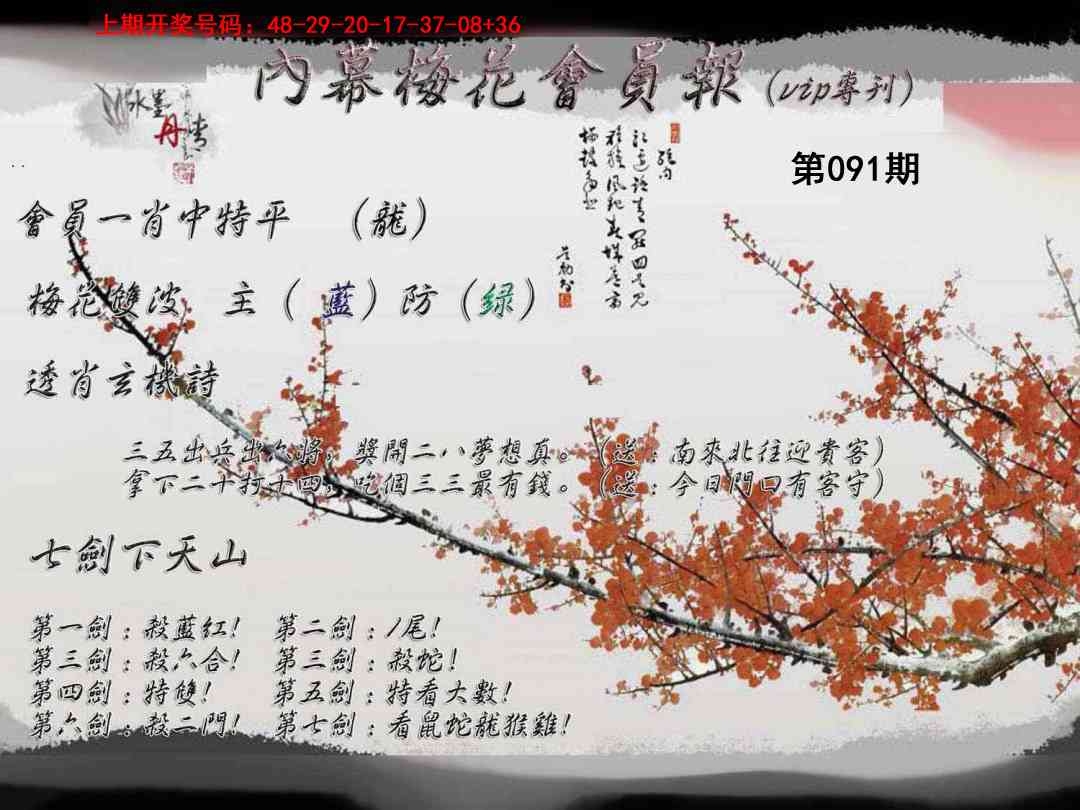 上期开奖号码：48-29-20-17-37-08+36
內幕梅花會員報（vip專刊）
水墨
丹青
第091期
會員一肖中特平　（龍）
梅花雙波　主（藍）防（綠）
透肖玄機詩
三五出兵出六將，獎開二八夢想真。（送：南來北往迎貴客）
拿下二十打十四，吃個三三最有錢。（送：今日門口有客守）
七劍下天山
第一劍：殺藍紅！　第二劍：1尾！
第三劍：殺六合！　第三劍：殺蛇！
第四劍：特雙！　第五劍：特看大數！
第六劍：殺二門！　第七劍：看鼠蛇龍猴雞！